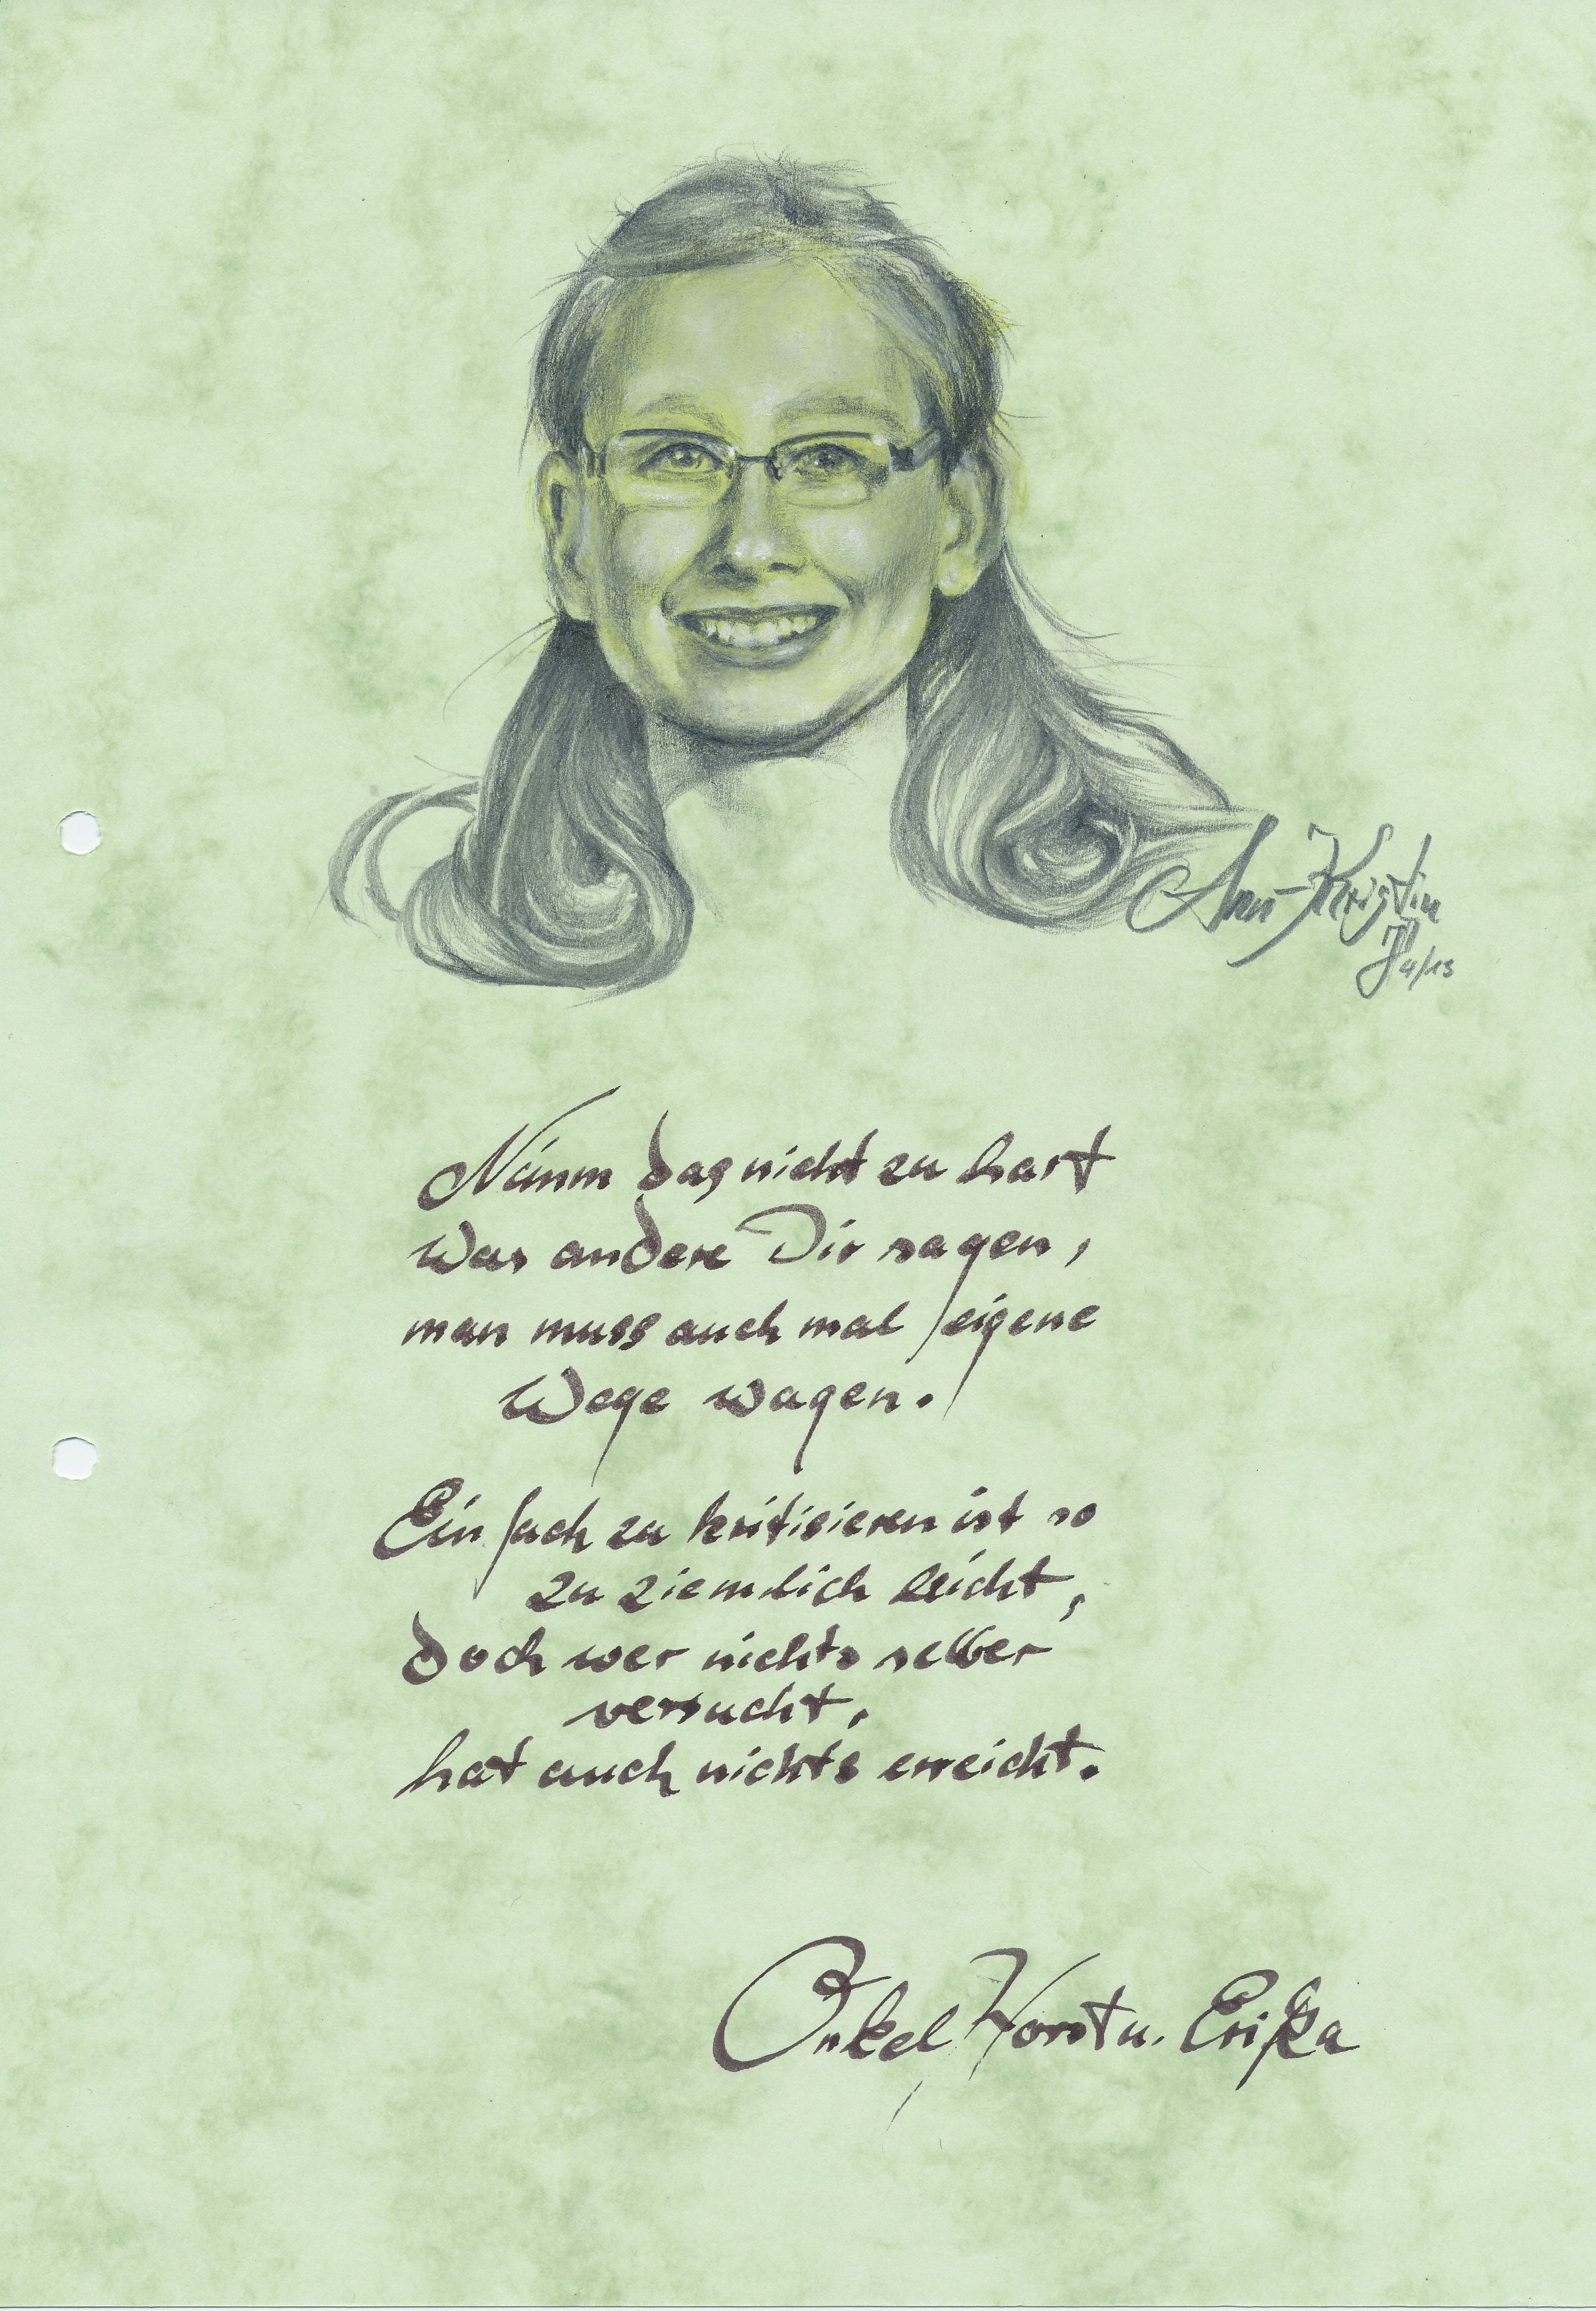 Ann-Kristin
4/13
Nimm das nicht zu hart
was andere Dir sagen,
man muss auch mal eigene
Wege wagen.
Einfach zu kritisieren ist so
zu ziemlich leicht,
doch wer nichts selber
versucht,
hat auch nichts erreicht.
Onkel Horst u. Erika